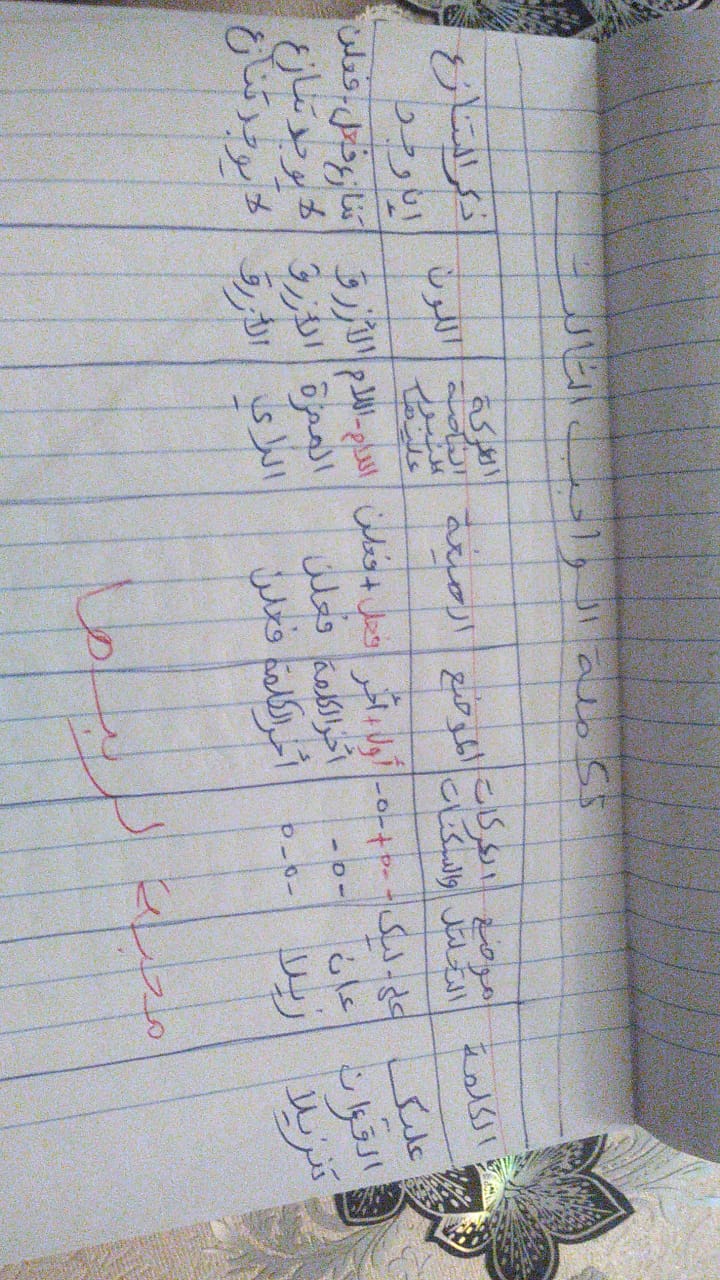 تكملة الواجب الثالث
الكلمة موضع الحركات والسكنات الموضع الصيغة الحركة الخاصة عليها اللون ذكر التنازع إن وجد
عليك علي - ليك - - o + - o - أول + آخر فعل + فعلن اللام - اللام الأزرق تنازع فعل - فعلن
القرآن ءان - o - آخر الكلمة فعلن الهمزة الأزرق لا يوجد تنازع
تنزيلا زيلا - o - o آخر الكلمة فعلن الزاي الأزرق لا يوجد تنازع
محبة لربها